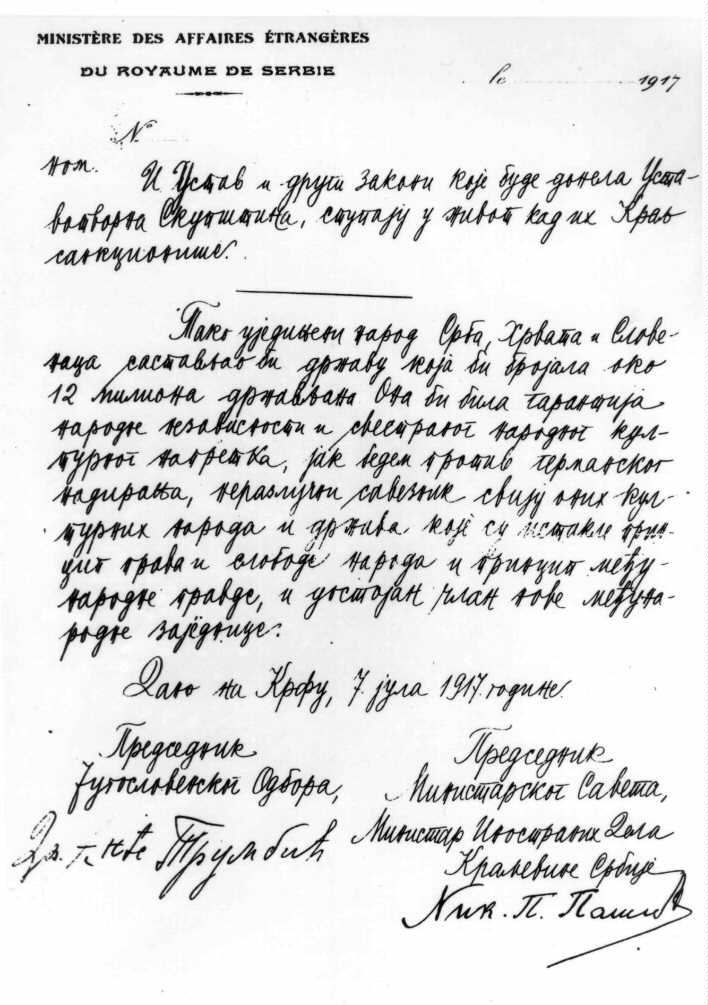 MINISTÈRE DES AFFAIRES ÉTRANGÈRES
DU ROYAUME DE SERBIE
le 1917
N
ном. И Устав и други закони које буде донела Уста-
вотворна Скупштина, ступају у живот кад их Краљ
санкционише.
Тако уједињени народ Срба, Хрвата и Слове-
наца састављао би државу која би бројала око
12 милиона држављана. Она би била гарантија
народне независности и свестраног народног кул-
турног напретка, јак бедем против германског
надирања, неразлучни савезник свију оних кул-
турних народа и држава које су истакле прин-
цип права и слободе народа и принцип међу-
народне правде, и достојан члан нове међуна-
родне заједнице.
Дано на Крфу, 7. јула 1917. године.
Председник
Југословенског Одбора,
Др. Трумбић
Председник
Министарског Савета,
Министар Иностраних Дела
Краљевине Србије
Ник. П. Пашић